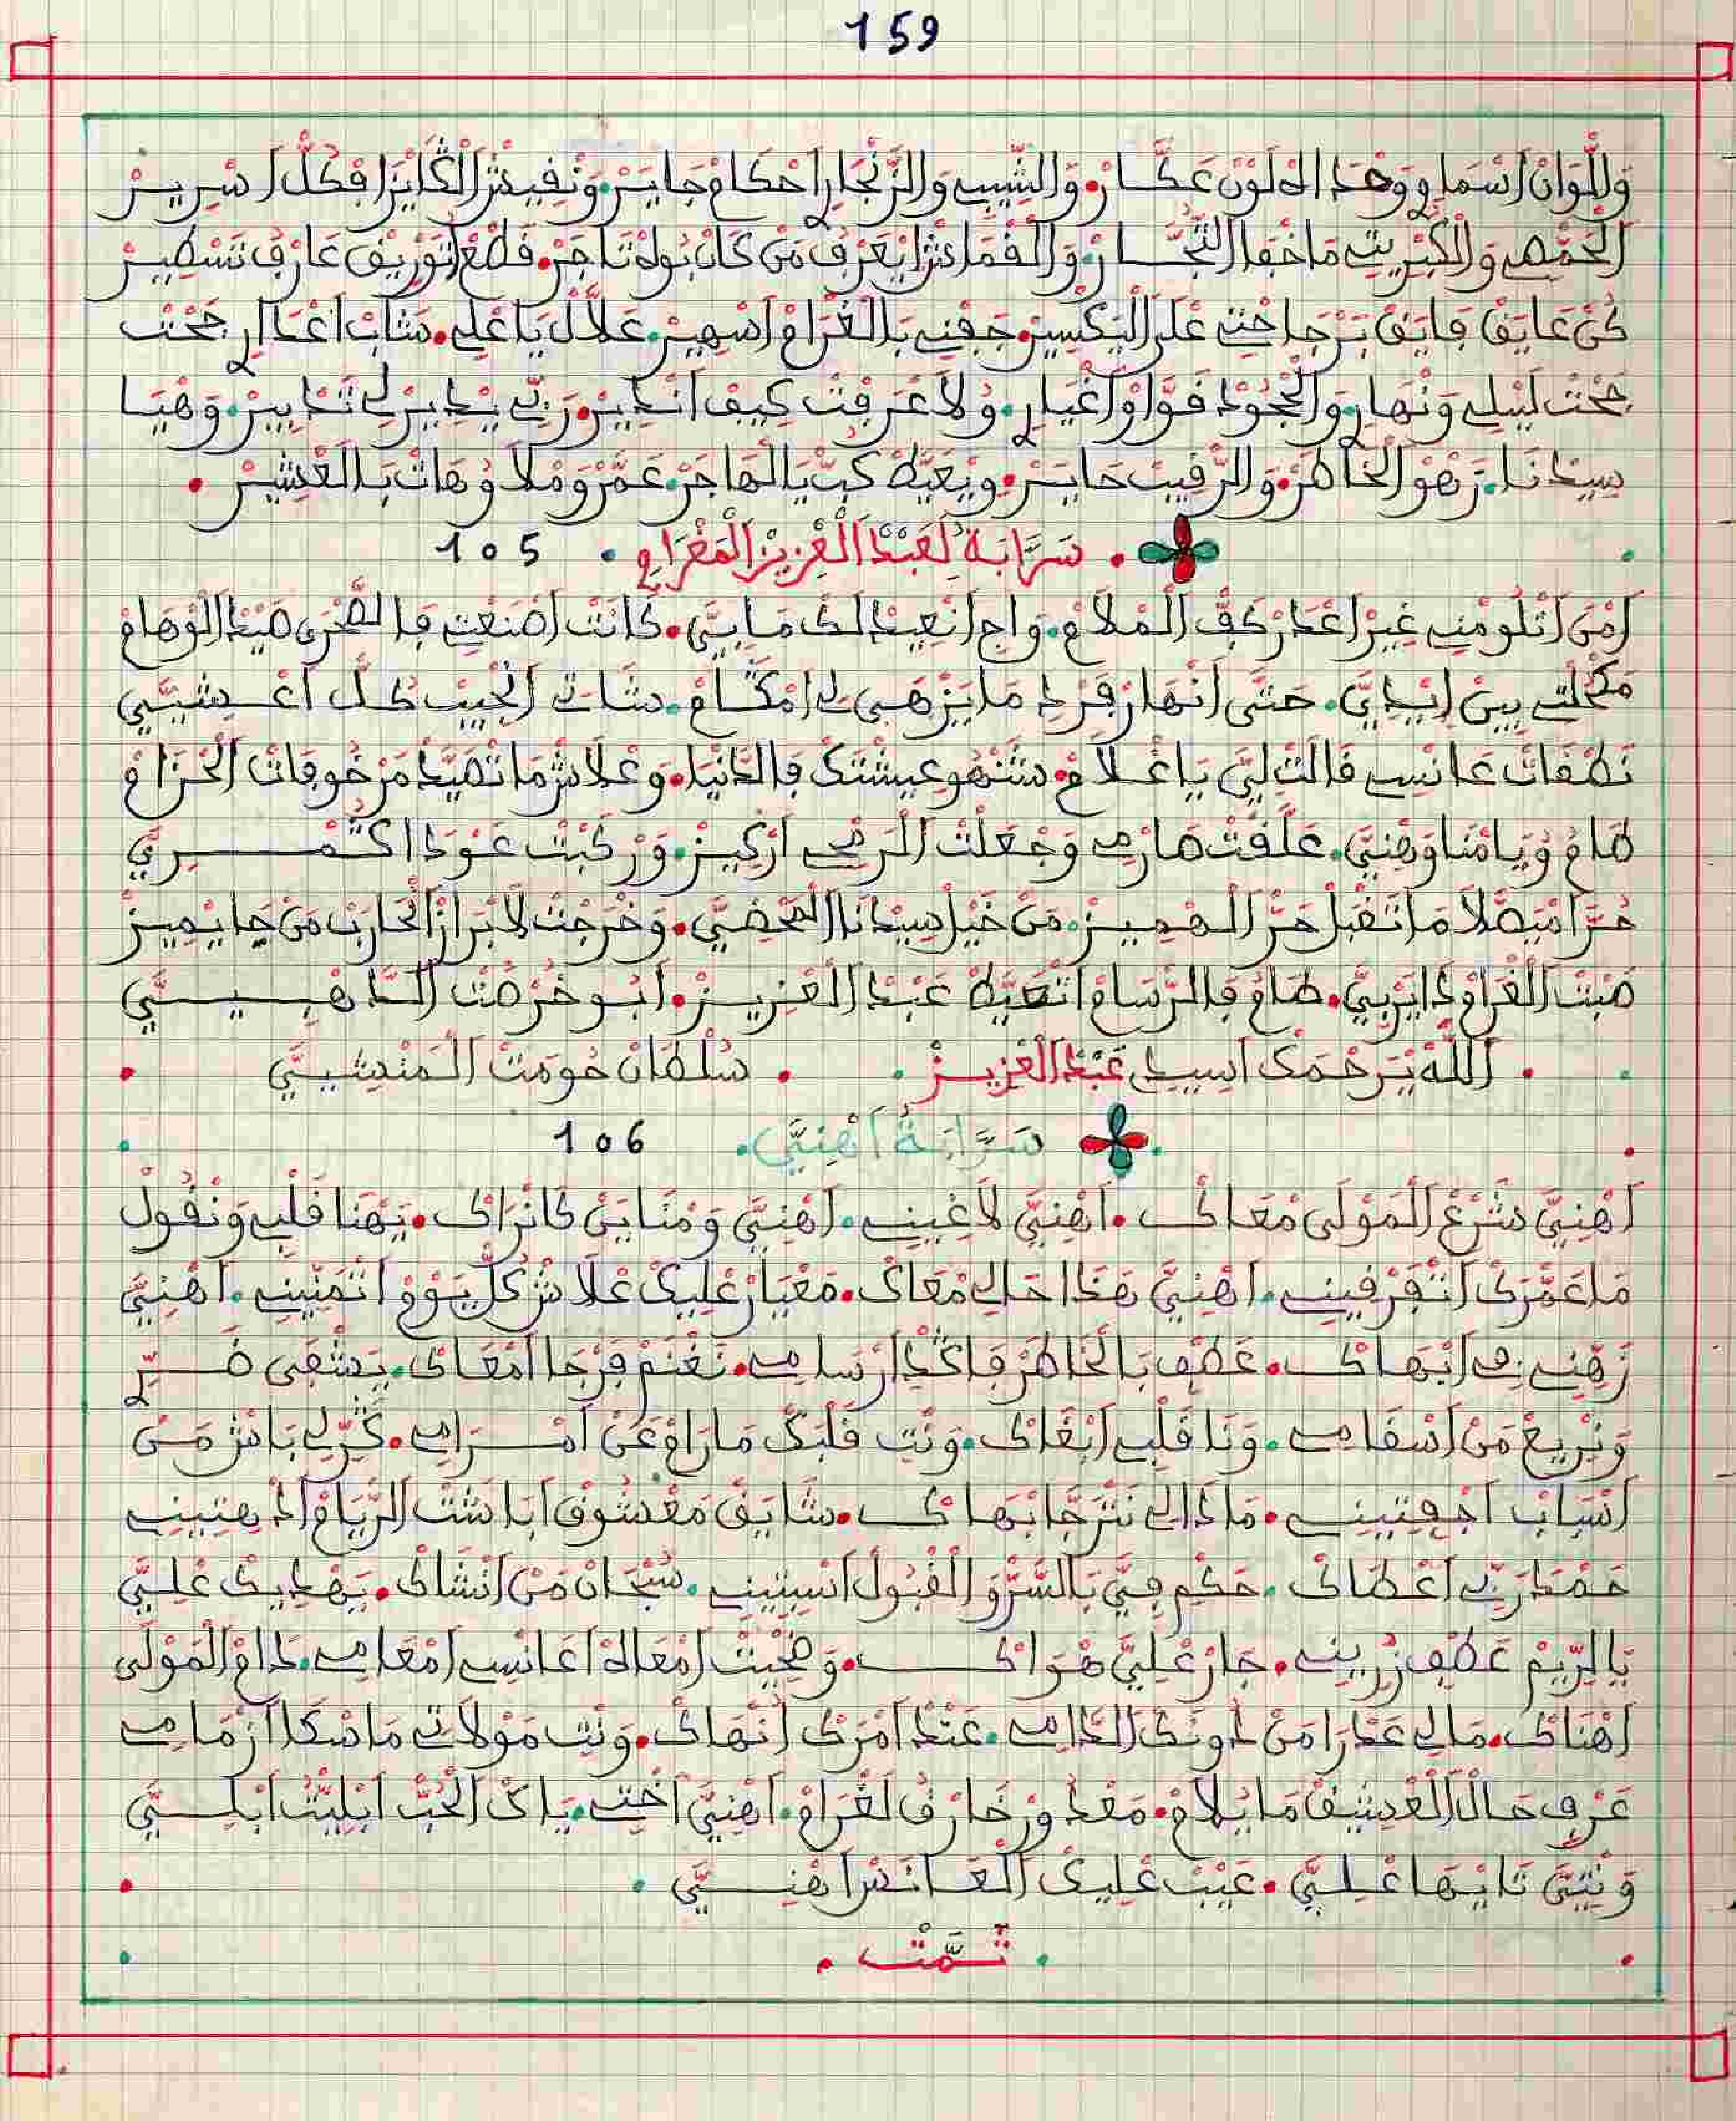 159
وَاللّوَانْ اَسْمَاوِ وَوحْدَ الهْ لَوْنْ عَكَّارْ. وَالشِّيبْ وَالزَّنْجَارْ احْكَامْ جَايَرْ. وَنْفِيدَشْ الْكَايَزْ افْكُلّْ اَسْرِيرْ
الْحَمْصِ وَالْكَبْرِيتْ مَاخْفَا التُّجَّارْ. وَالْقْمَاشْ ايْعَرْفُ مَنْ كَانْ بُوهْ تَاجَرْ. قَطْعْ اتْوَرِيقْ عَارَفْ تَسْطِيرْ
كُنْ عَايَقْ فَايَقْ يَرْجَاخْتِ عْلَى الْيَكْسِيرْ. جَفْنِي بَالْغْرَامْ اَسْهِيرْ. عَلاَّلْ يَا عْلِي. شَابْ اعْدَارِ جَحْتْ
جَحْتْ لَيْلِي وَنْهَارِ. وَالْجْحُودْ قَوَّاوْ اَغْيَارِ. وُلاَ عْرَفْتْ كِيفْ انْدِيرْ. رَبِّي يْدِيرْ لِي تَدْبِيرْ. وَهْيَا
سِيدْنَا. زَهْوْ الْخَاطَرْ. وَالرّْقِيبْ حَايَرْ. وِيْعَيَّطْ كبّْ يَا لْهَاجَرْ. عَمَّرْ وَمْلاَ وُهَاتْ بَالْعْشِيرْ.
سَرَّابَةْ لَعَبْدْ الْعْزِيزْ الْمَغْرَاوِي. 105
اَمَنْ اتْلُومْنِي غِيرْ اعْدَرْ كَفّْ الْمْلاَمْ. وَاجِ انْعِيدْ لَكْ مَا بِيَّ. كَانْتْ اصْنَعْتِي فَالصّْحَرى صَيْدْ الْوْهَامْ
مَكْحَلْتِي بِينْ ايْدِيَّ. حَتَّى انْهَارْ فَرْدْ مَا يَزْهَى لِي امْكَامْ. شَاتِي الْحْبِيبْ كُلّْ اعْشِيَّة
نَطْقَاتْ عَانْسِي قَالَتْ لِيَّ يَا غْلاَمْ. شَنْهُو عِيشْتَكْ فَالدَّنْيَا. وَعْلاَشْ مَا تْصَيَّدْ مَرْخُوفَاتْ الْحْزَامْ
هَامُ وُيَامْنَا وَصْنِيَّ. عَلَّقْتْ صَارْمِي وَجْعَلْتْ الْرَمْحِي ارْكِيزْ. وَرْكَبْتْ عَوْدَا اكْـــمْـــرِيَّ
حُرَّا مْيَصْلاَ مَا تَقْبَلْ حَرّْ الْهْمِيزْ. مَنْ خَيْلْ سِيدْنَا الْمَحْضِيَّ. وَخْرَجْتْ لاَبْرَازْ الْحَارَبْ مَنْ جَا يْمِيزْ
صَبْتْ الْغْرَامْ دَايَرْ بِيَّ. هَامُ فَالرّْسَامْ اتْصَيَّطْ عَبْدْ الْعْزِيزْ. ابُو خُرْصْتْ الدَّهْبِيَّ
. اللَّهْ يَرَحْمَكْ اسِيدِي عَبْدْ الْعْزِيزْ. سُلْطَانْ حُومَتْ الْمَنْشِيَّ
سَرَّابَةْ اهْنِيَّ. 106
اهْنِيَّ شَرْعْ الْمَوْلَى مْعَاكْ. اهْنِيَّ لاَ غْبِينِي. اهْنِيَّ وَمْنَايَنْ كَانْرَاكْ. يَهْنَا قَلْبِي وَنْقُولْ
مَا عَمَّرَكْ اتْفَرْقِينِي. اهْنِيَّ هَذَا حَالِي مْعَاكْ. مَعْيَارْ عْلِيكْ عْلاَشْ كُلّْ يُوْمْ اتْمَنِّينِي. اهْنِيَّ
زَهِّينِي فِي ابْهَاكْ. عَطْفِ بَالْخَاطَرْ فَاكْدَ ارْسَامِي. نَغْنَمْ فَرْجَا امْعَاكْ. يَشْفَى ضَــرِّ
وَنْرِيعْ مَنْ اسْقَامِي. وَنَا قَلْبِي ابْغَاكْ. وَنْتِ قَلْبَكْ مَا رَامْ عَنْ امْــرَامِي. كُرِّي لِي بَاشْ مَنْ
اسْبَابْ اجْفِيتِينِي. مَادَا لِي نَتْرَجَّا بْهَاكْ. شَايَقْ مَعْشُوقْ ابَاشْتْ الرّْيَامْ ادْهِيتِينِي
حَمْدْ رَبِّي اعْطَاكْ. حَكْمِ فِيَّ بَالسَّرّْ وَالْقْبُولْ اسْبِيتِينِي. سُبْحَانْ مَنْ انْشَاكْ. يَهْدِيكْ عْلِيَّ
يَا الرِّيمْ عَطْفِ زُرِينِي. جَارْ عْلِيَّ هْوَاكْ. وَضْحِيتْ امْعَاهْ اعَانْسِي امْعَامِي. دَامْ الْمَوْلَى
اهْنَاكْ. مَا لِي عَدْرَا مَنْ دُونَكْ الدَّامِي. عَنْدْ امْرَكْ انْهَاكْ. وَنْتِ مَوْلاَتِي مَاسْكَا ازْمَامِي
عَرْفِ حَالْ الْعْشِيقْ مَا يُلاَمْ. مَعْدُورْ خَارْفْ لَغْرَامْ. اهْنِيَّ اخْتِي. يَاكْ الْحُبّْ ابْلِيتْ ابْلِيَّ
وَنْتِيَّ تَايْهَا عْلِيَّ. عَيْبْ عْلِيكْ الْعَانْسْ اهْنِيَّ.
. تَـمَّتْ .